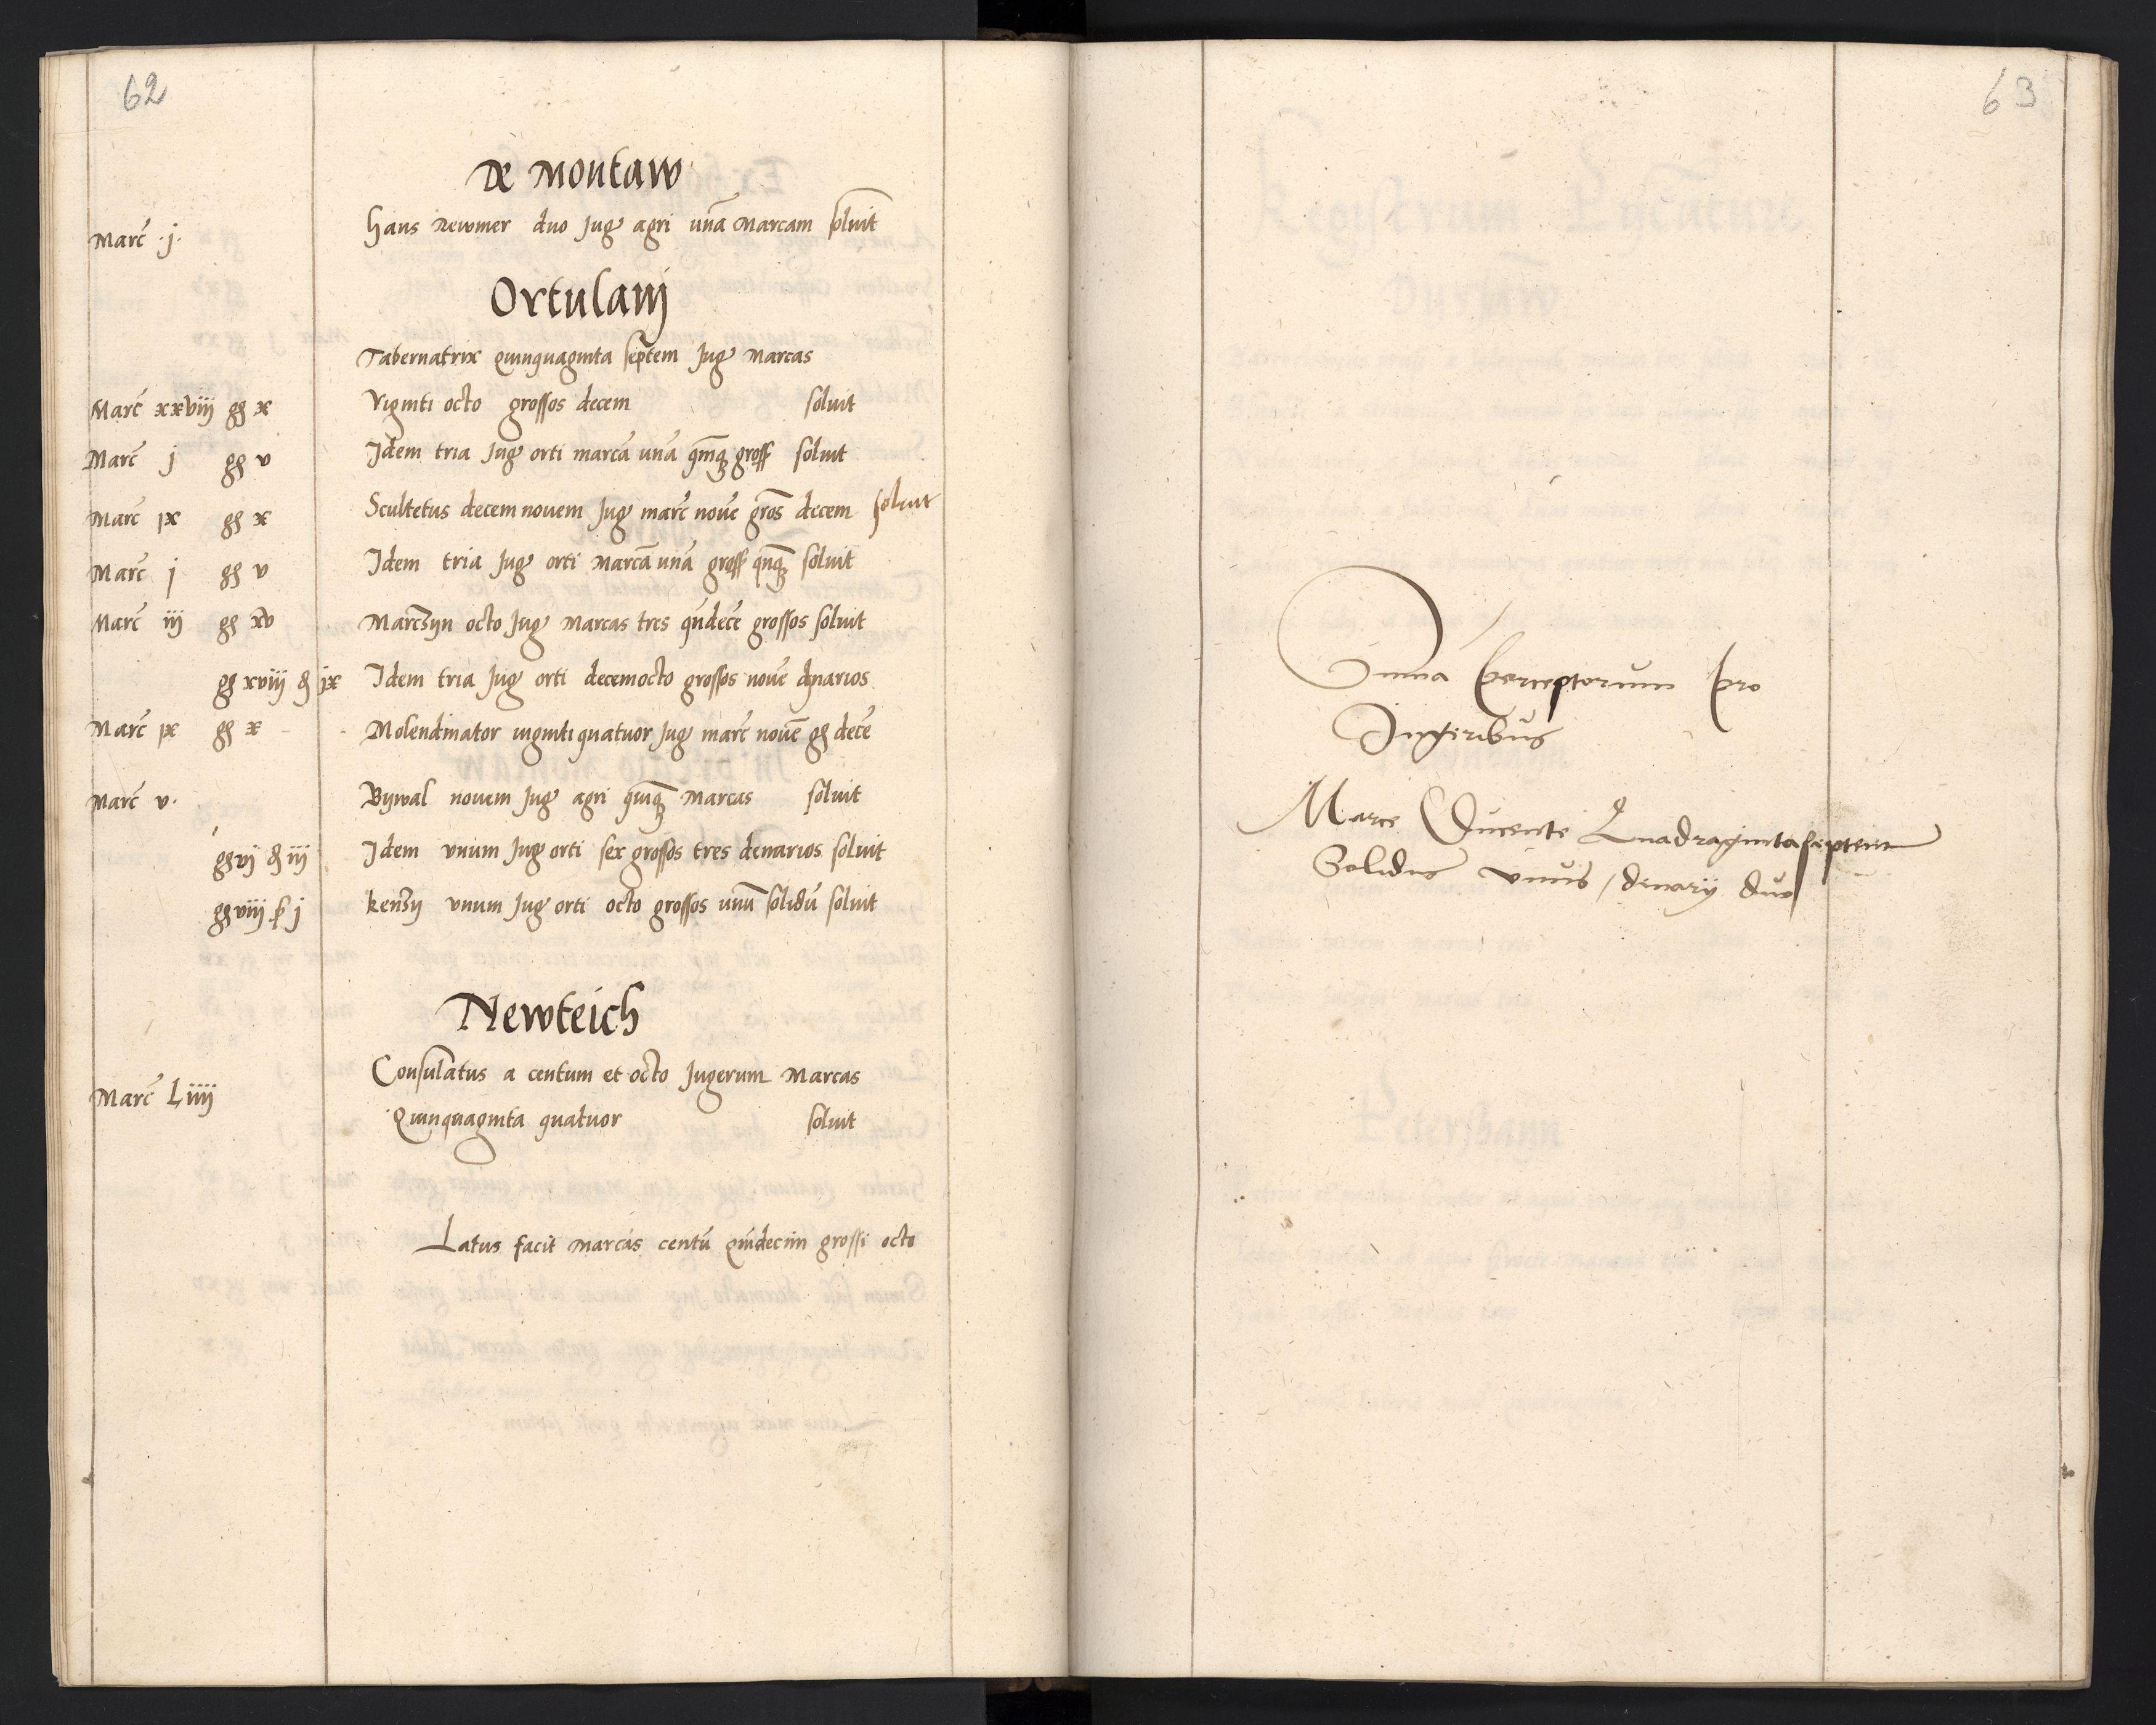 62
De Montaw
Marc̄ .j. Hans Newmer duo Jug agri unā Marcam soluit
Ortulanij
Tabernatrix Quinquaginta septem Jug Marcas
Marc̄ xxviij gʒ x Viginti octo grossos decem soluit
Marc̄ j gʒ v Idem tria Jug orti marcā unā qnqʒ gross soluit
Marc̄ ix gʒ x Scultetus decemnouem Jug marc̄ noūe gros decem soluit
Marc̄ j gʒ v Idem tria Jug orti Marcā unā gross qnqʒ soluit
Marc̄ iij gʒ xv Marczyn octo Jug Marcas tres qndecē grossos soluit
gʒ xviij ₰ ix Idem tria Jug orti decemocto grossos nouē dnarios
Marc̄ ix gʒ x Molendinator uigintiquatuor Jug marc̄ nouē gʒ decē
Marc̄ v. Bywal nouem Jug agri quiqʒ Marcas soluit
gʒ vj ₰ iij Idem vnum Jug orti sex grossos tres denarios soluit
gʒ viij ß j Kenszy vnum Jug orti octo grossos unū solidū soluit
Newteich
Consulatus a centum et octo Jugerum Marcas
Marc̄ Liiij Quinquaginta quatuor soluit
Latus facit Marcas centū quīdecim grossi octo
63
Sum̄a perceptorum pro
Jugeribus
Marce Ducente Quadragintaseptem
Solidus vnus / denarij duo